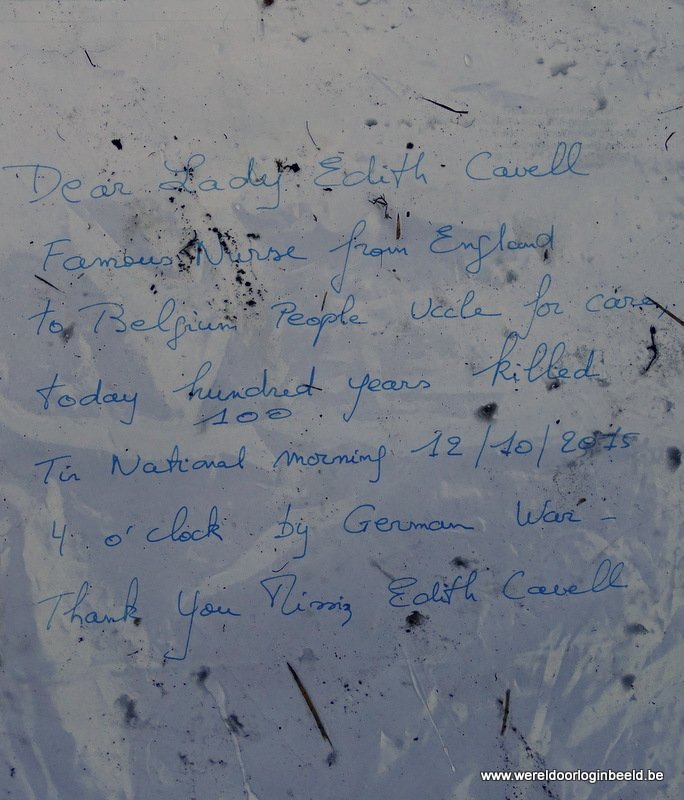 Dear Lady Edith Cavell
Famous Nurse from England
to Belgium People Uccle for care
today hundred years killed
100
Tir National morning 12/10/2015
4 o'clock by German War -
Thank you Missiz Edith Cavell
www.wereldoorloginbeeld.be